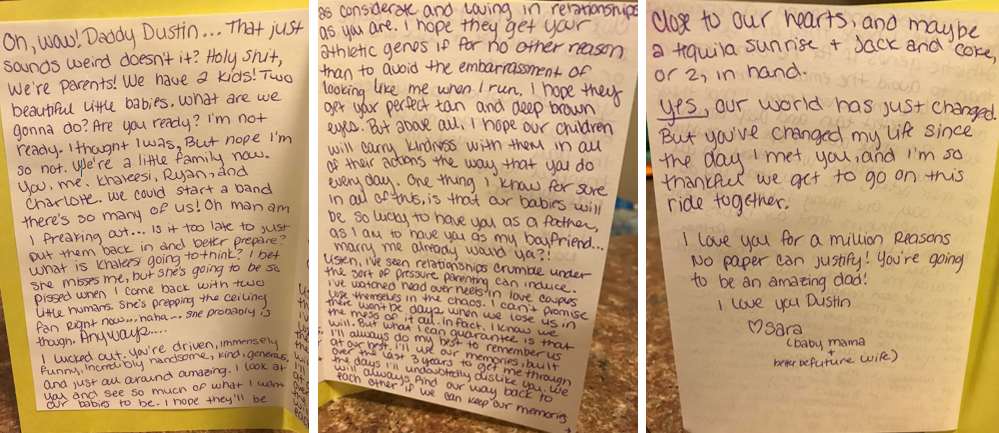 Oh, wow! Daddy Dustin... That just
sounds weird doesn't it? Holy shit,
we're parents! We have 2 kids! Two
beautiful little babies. What are we
gonna do? Are you ready? I'm not
ready. I thought I was, But nope I'm
so not. We're a little family now.
You, me, Khaleesi, Ryan, and
Charlotte. We could start a band
there's so many of us! Oh man am
I freaking out... Is it too late to just
put them back in and better prepare?
What is Khaleesi going to think? I bet
she misses me, but she's going to be so
pissed when I come back with two
little humans. She's prepping the ceiling
fan right now... haha... she probably is
though. Anyways....
I lucked out. You're driven, immensely
funny, incredibly handsome, kind, generous,
and just all around amazing. I look at
you and see so much of what I want
our babies to be. I hope they'll be
as considerate and loving in relationships
as you are. I hope they get your
athletic genes if for no other reason
than to avoid the embarrassment of
looking like me when I run. I hope they
get your perfect tan and deep brown
eyes. But above all, I hope our children
will carry kindness with them in all
of their actions the way that you do
every day. One thing I know for sure
in all of this, is that our babies will
be so lucky to have you as a father,
as I am to have you as my boyfriend...
marry me already would ya?!
Listen, I've seen relationships crumble under
the sort of pressure parenting can induce.
I've watched head over heels in love couples
lose themselves in the chaos. I can't promise
there won't be days when we lose us in
the mess of it all. In fact, I know we
will. But what I can guarantee is that
I'll always do my best to remember us
at our best. I'll use our memories, built
over the last 3 years to get me through
the days I'll undoubtedly dislike you. We
will always find our way back to
each other if we can keep our memories
close to our hearts, and maybe
a tequila sunrise + Jack and Coke,
or 2, in hand.
Yes, our world has just changed.
But you've changed my life since
the day I met you, and I'm so
thankful we get to go on this
ride together.
I love you for a million Reasons
No paper can justify! You're going
to be an amazing dad!
I love you Dustin
♡Sara
(baby mama
+
better be future wife)